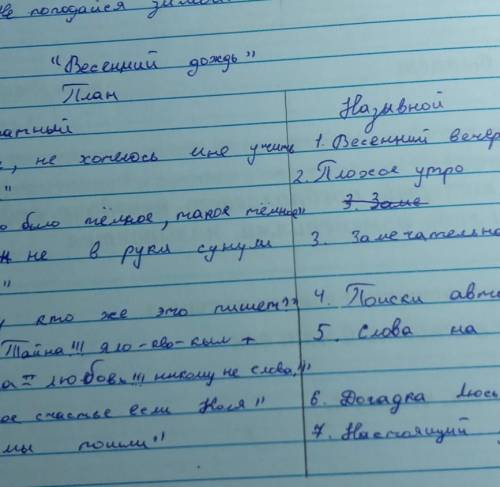 не попадайся
"Весенний дождь"
План
Назывной
, не хотелось мне учить
1. Весенний вечер
"
2. Плохое утро
было тёмное, такое тёмное"
3. Заме
не в руки сунули
3. Замечательно
"
кто же это пишет??
4. Поиски авто
Тайна!!! яло-ево-кыл +
5. Слова на
= любовь!!! никому не слова!"
ое счастье если Коля"
6. Догадка Люсь
мы пошли"
7. Настоящий